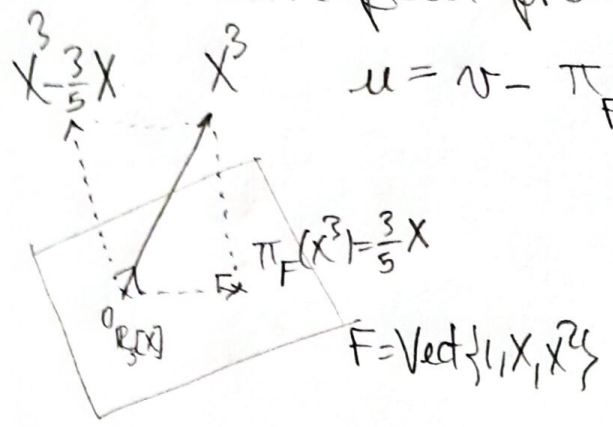 X³-3/5 X
X³
u = v - π_F
π_F(X³)=3/5 X
0_ℝ₃[X]
F=Vect{1,X,X²}